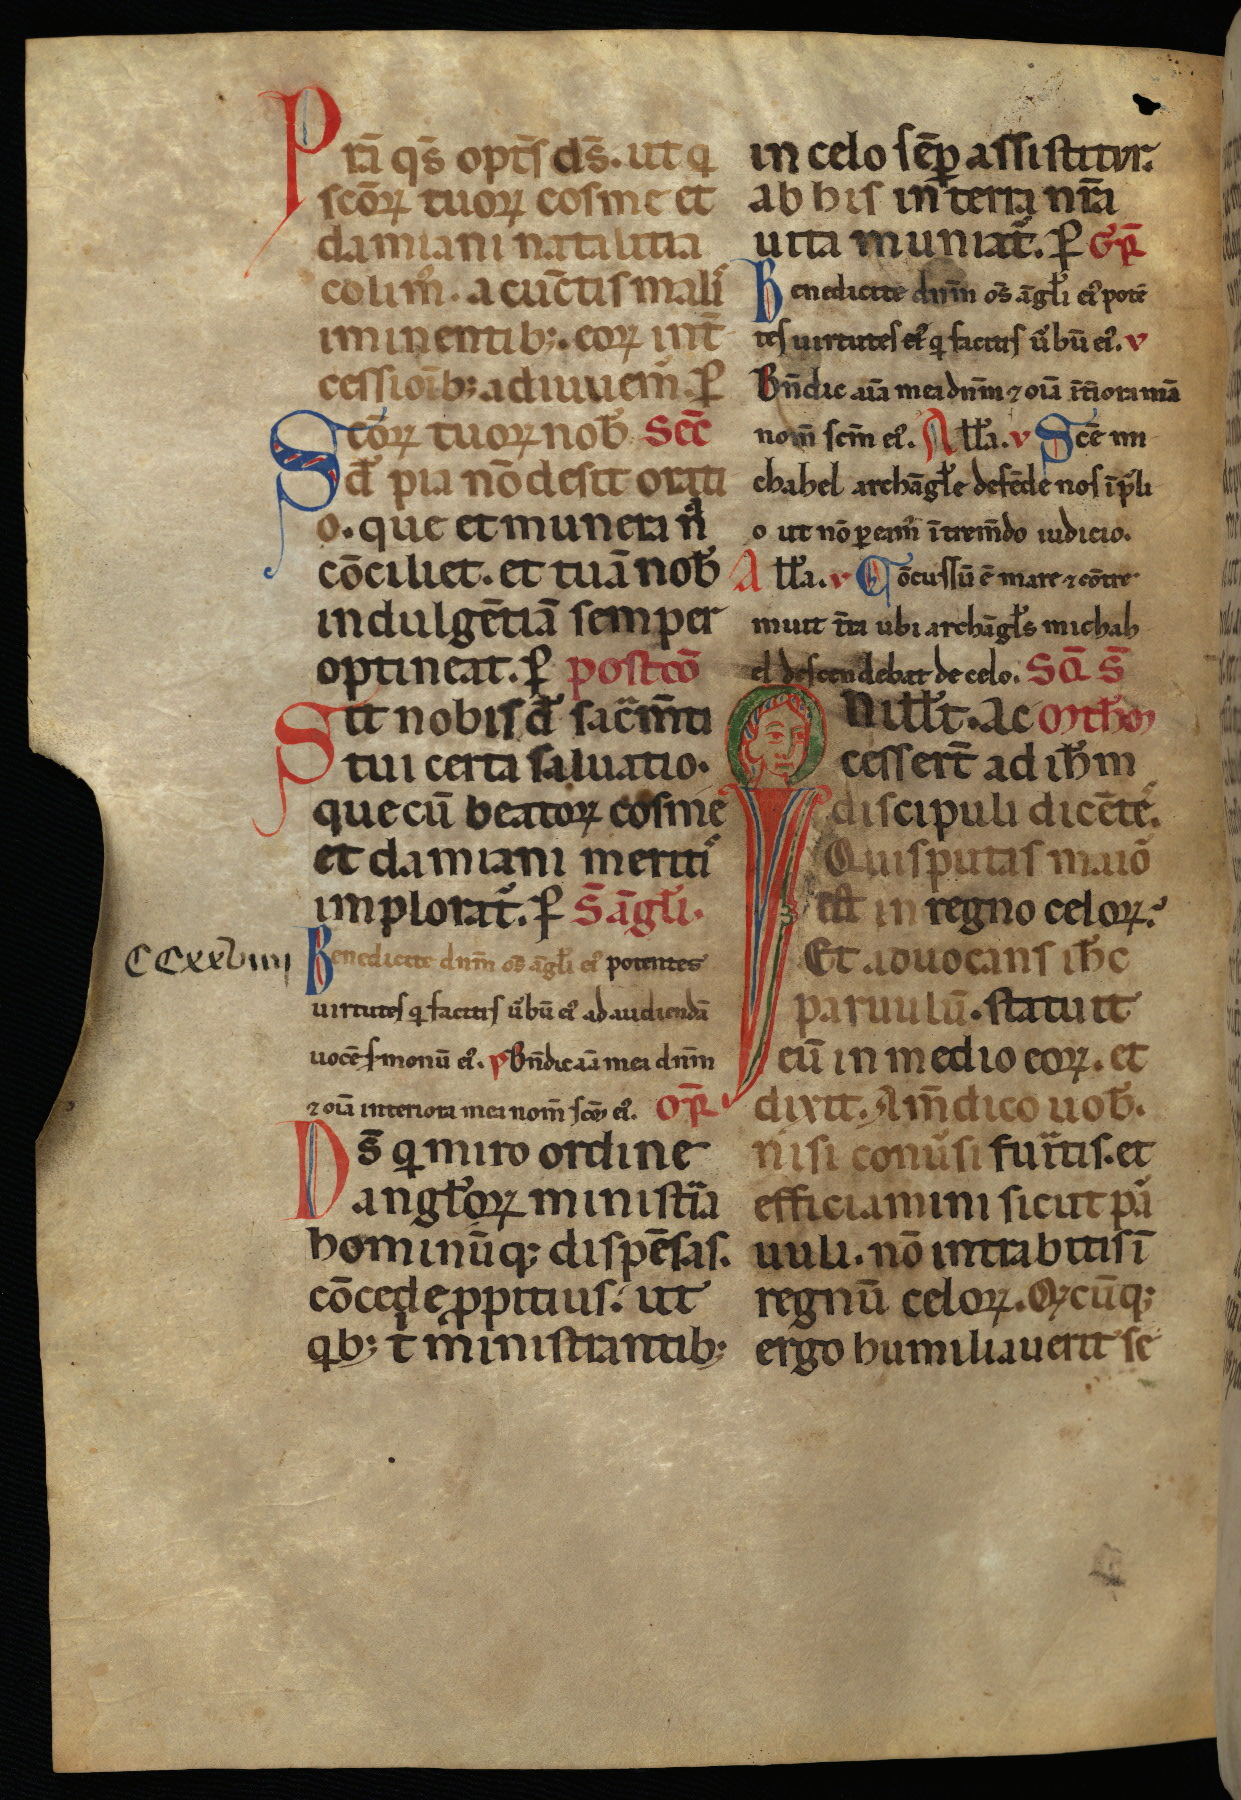 Pr̄a q̄s opt̄s d̄s. ut q
scōꝝ tuoꝝ cosme et
damiani natalitia
colim᷒. a cūctis mali᷒
iminentib;. eoꝝ int̄
cessioīb; adiuuem᷒. ꝑ
Scōꝝ tuoꝝ nob̄ Sec̄
d̄ pia nō desit orati
o. que et munera n̄
cōciliet. et tuā nob̄
indulgētiā semper
optineat. ꝑ postcō
Sit nobis d̄ sacm̄ti
tui certa saluatio.
que cū beatoꝝ cosme
et damiani meriti᷒
implorat᷒. ꝑ S̄ āgl̄i.
CCxxviiii
Benedicite dnm̄ om̄s āgl̄i ei᷒ potentes
uirtutes q̇ facitis u᷒bū ei᷒ ad audiendā
uocē s̄monū ei᷒. p Bn̄dic aīa mea dnm̄
⁊ oīa interiora mea nom̄ scm̄ ei᷒. Or̄
Ds̄ q̇ miro ordine
angl̄oꝝ ministīa
hominūq; dispēsas.
cōcede ꝓpitius. ut
qib; t᷒ ministrantib;
in celo sēꝑ assistitur.
ab his in terra nr̄a
uita muniat᷒. ꝑ Gr̄
Benedicite dnm̄ om̄s āgl̄i ei᷒ potē
tes uirtutes ei᷒ q̇ facitis u᷒bū ei᷒. v
Bn̄dic aīa mea dnm̄ ⁊ oīa īt̄iora mā
nom̄ scm̄ ei᷒. All̄a. v Scē mi
chahel archāgl̄e defēde nos ī p̄li
o ut nō ꝑeam᷒ ī trem̄do iudicio.
All̄a. v Cōcussū ē mare ⁊ cōtre
muit t̄ra ubi archāgl̄s michah
el descendebat de celo. Sc̄a s̄
IN ill̄t. Ac Mth̄m
cesser̄t ad ih̄m
discipuli dicēte᷒.
Quis putas maiō
est in regno celoꝝ.
Et aduocans ih̄c
paruulū. statuit
eū in medio eoꝝ. et
dixit. Am̄ dico uob̄.
nisi conu᷒si fu᷒itis. et
efficiamini sicut pa᷒
uuli. nō intrabitis ī
regnū celoꝝ. Qicūq;
ergo humiliauerit se